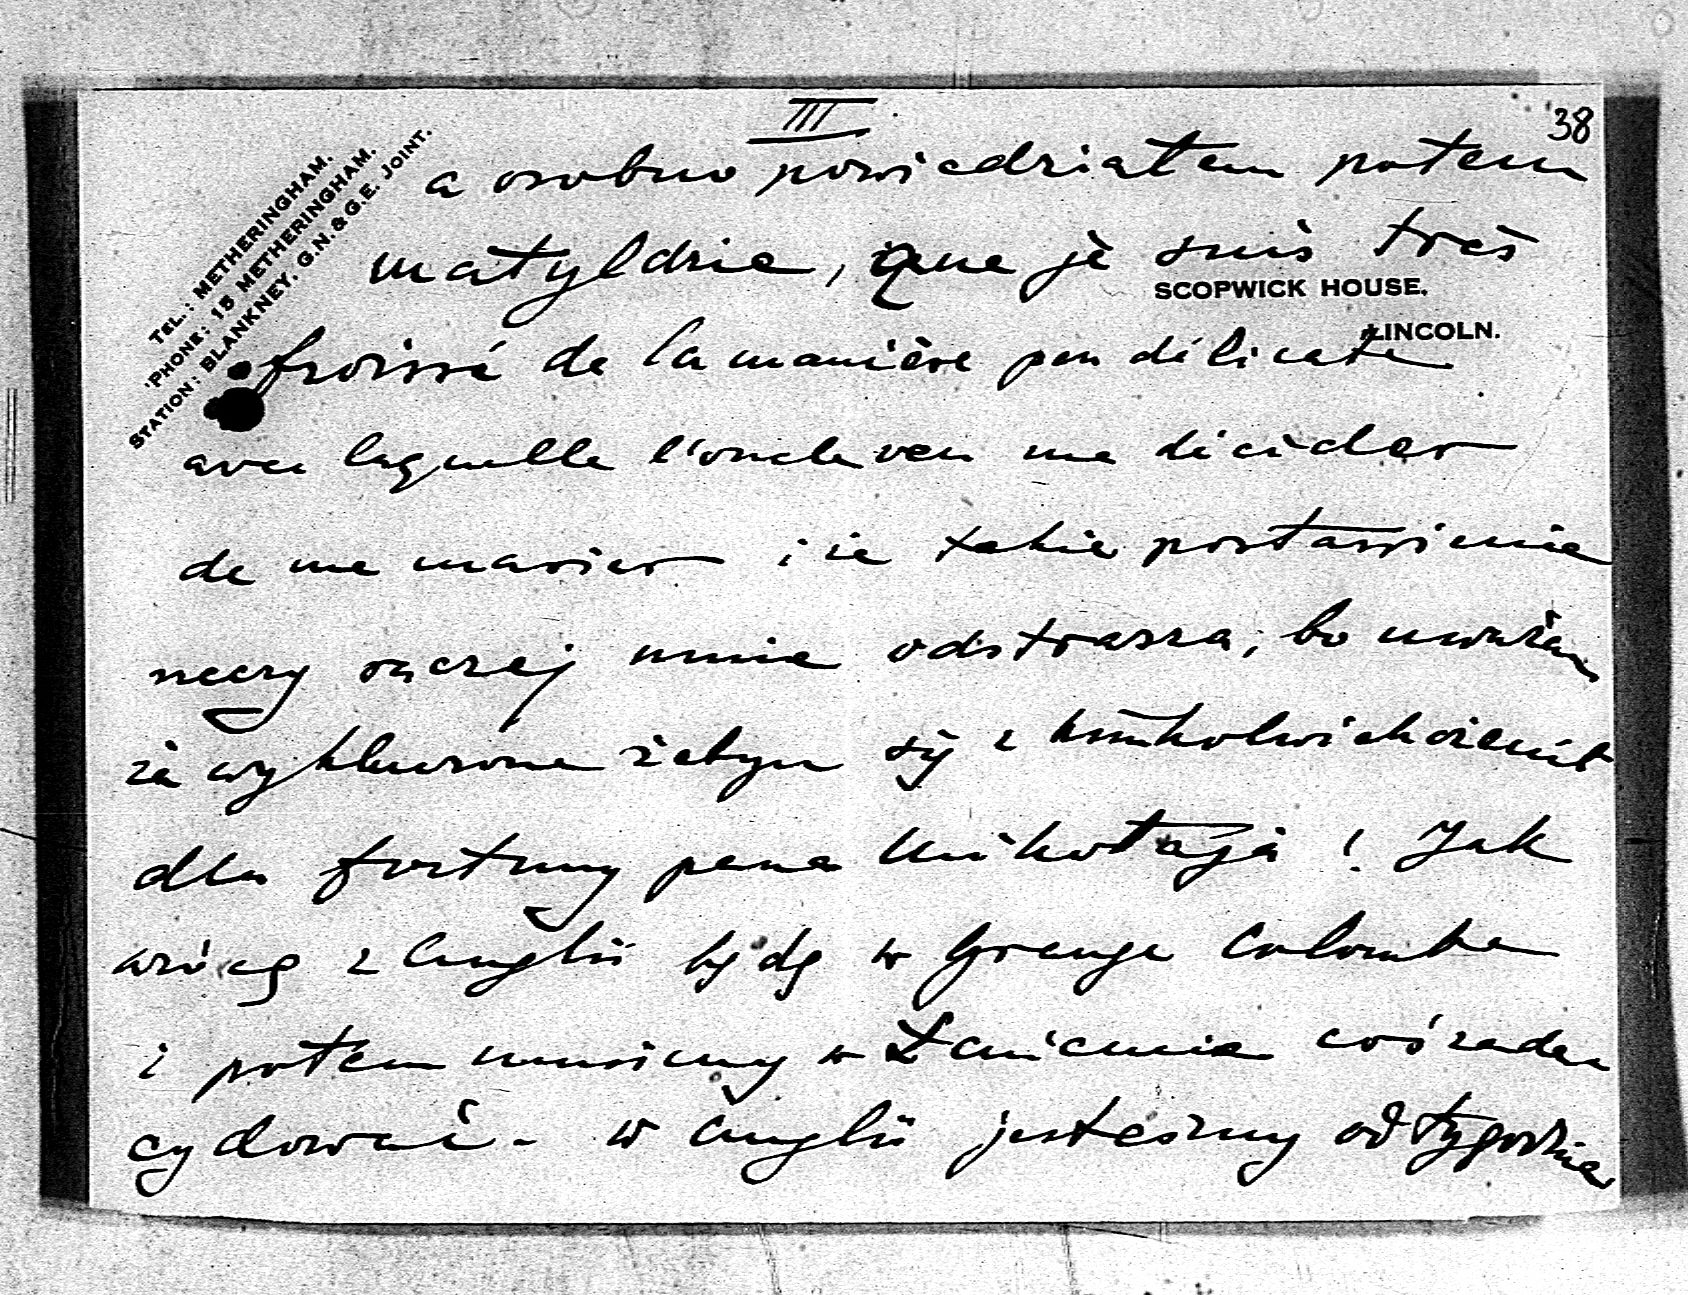 III
38
TEL.: METHERINGHAM.
'PHONE: 15 METHERINGHAM.
STATION: BLANKNEY, G.N. & G.E. JOINT.
a osobno powiedziałem potem
Matyldzie, que je suis très
SCOPWICK HOUSE,
LINCOLN.
froissé de la manière peu délicate
avec laquelle l'oncle veu me décider
de me marier i że takie postawienie
rzeczy raczej mnie odstrasza, bo uważam
za wykluczone żebym się z kimkolwiek ożenił
dla fortuny pana Mikołaja! Jak
wrócę z Anglii będę w Grange Colombe
i potem musimy w Łanicunia coś zade
cydować - w Anglii jesteśmy od tygodnia